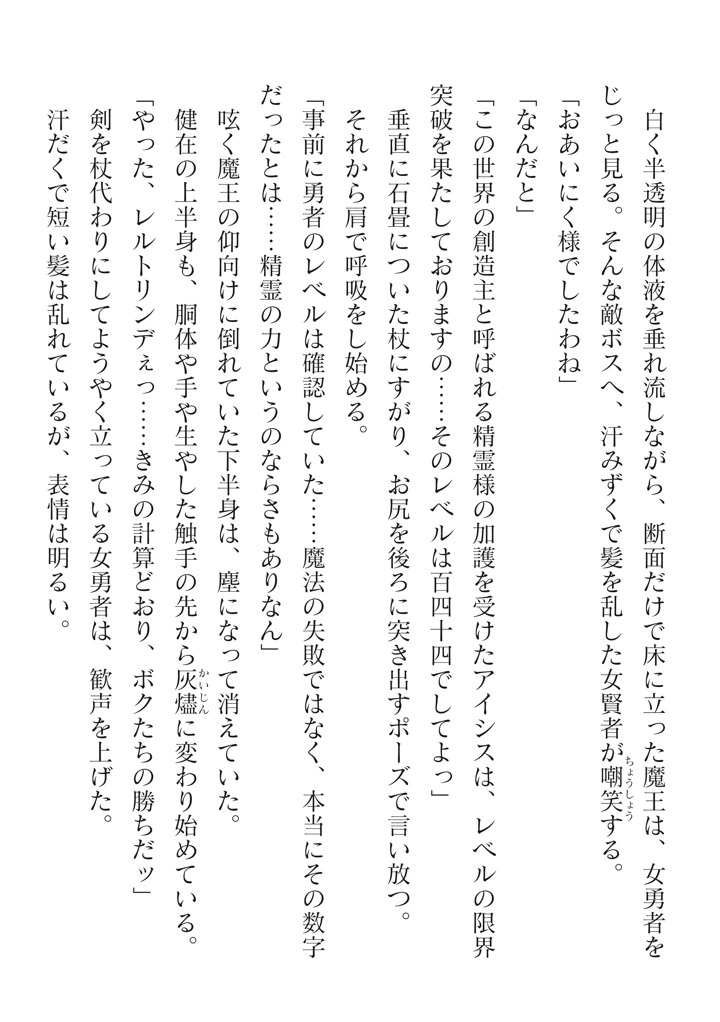 白く半透明の体液を垂れ流しながら、断面だけで床に立った魔王は、女勇者を
じっと見る。そんな敵ボスへ、汗みずくで髪を乱した女賢者が嘲笑する。
ちょうしょう
「おあいにく様でしたわね」
「なんだと」
「この世界の創造主と呼ばれる精霊様の加護を受けたアイシスは、レベルの限界
突破を果たしておりますの……そのレベルは百四十四でしてよっ」
垂直に石畳についた杖にすがり、お尻を後ろに突き出すポーズで言い放つ。
それから肩で呼吸をし始める。
「事前に勇者のレベルは確認していた……魔法の失敗ではなく、本当にその数字
だったとは……精霊の力というのならさもありなん」
呟く魔王の仰向けに倒れていた下半身は、塵になって消えていた。
健在の上半身も、胴体や手や生やした触手の先から灰燼に変わり始めている。
かいじん
「やった、レルトリンデぇっ……きみの計算どおり、ボクたちの勝ちだッ」
剣を杖代わりにしてようやく立っている女勇者は、歓声を上げた。
汗だくで短い髪は乱れているが、表情は明るい。